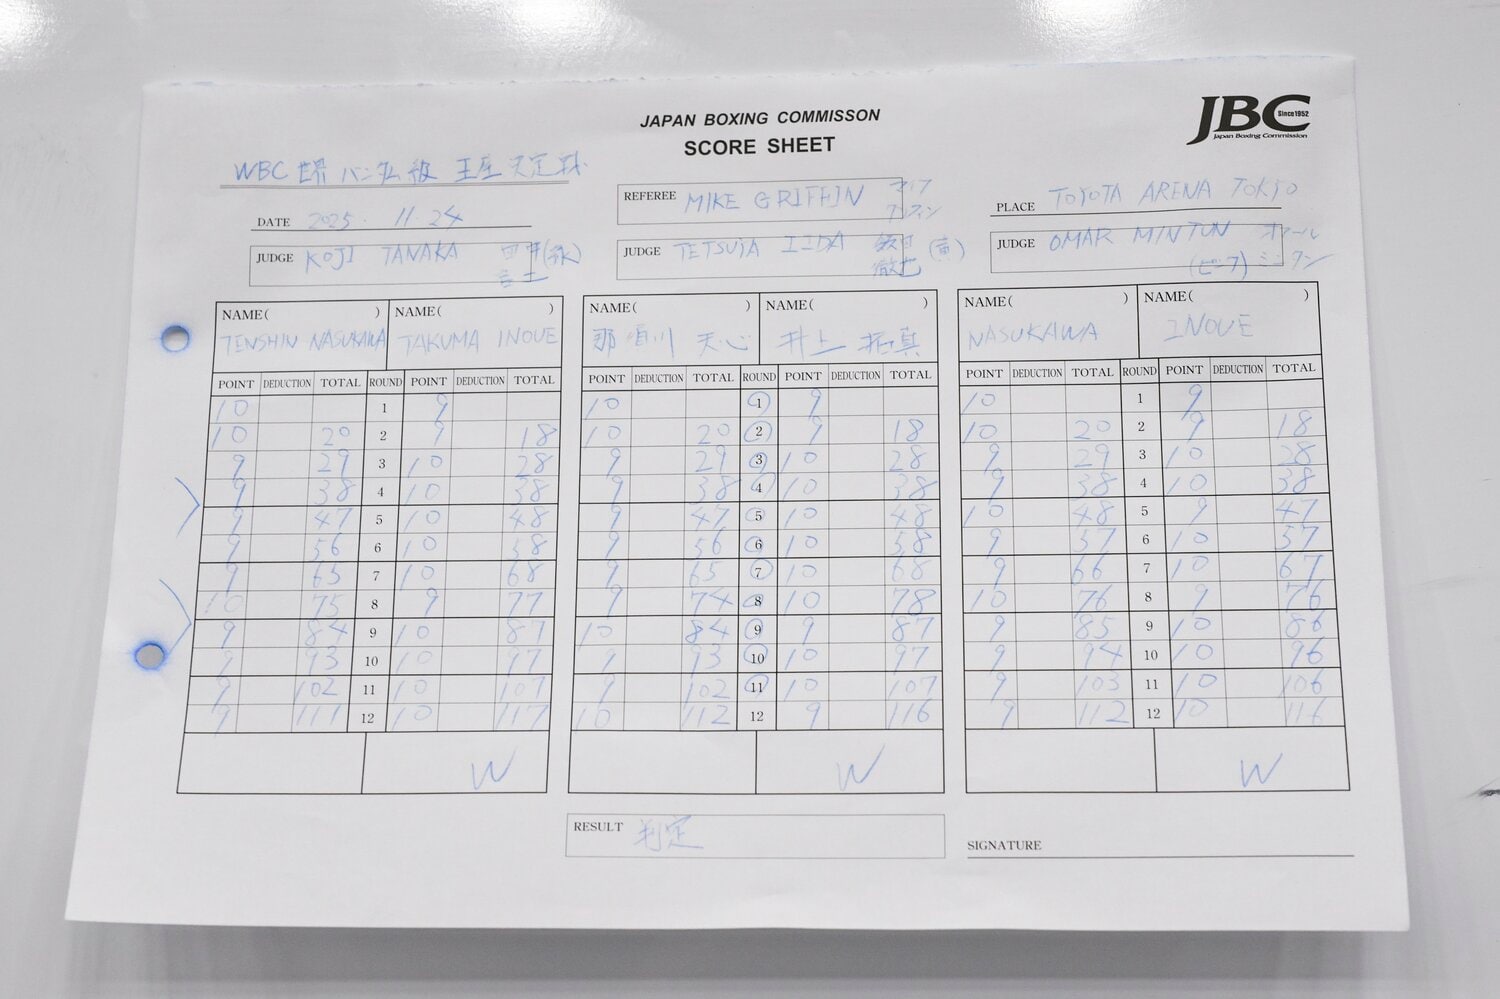 JAPAN BOXING COMMISSON
SCORE SHEET
JBC Since1952
Japan Boxing Commission
WBC 世界 バンタム級 王座決定戦
DATE 2025. 11. 24
REFEREE MIKE GRIFFIN マイク グリフィン
PLACE TOYOTA ARENA TOKYO
JUDGE KOJI TANAKA
JUDGE TETSUYA IIDA 飯田 徹也
JUDGE OMAR MINTUN オマール ミンタン
NAME( ) NAME( ) NAME( ) NAME( ) NAME( ) NAME( )
TENSHIN NASUKAWA TAKUMA INOUE 那須川 天心 井上 拓真 NASUKAWA INOUE
POINT DEDUCTION TOTAL ROUND POINT DEDUCTION TOTAL POINT DEDUCTION TOTAL ROUND POINT DEDUCTION TOTAL POINT DEDUCTION TOTAL ROUND POINT DEDUCTION TOTAL
10 1 9 10 1 9 10 1 9
10 20 2 9 18 10 20 2 9 18 10 20 2 9 18
9 29 3 10 28 9 29 3 10 28 9 29 3 10 28
9 38 4 10 38 9 38 4 10 38 9 38 4 10 38
9 47 5 10 48 9 47 5 10 48 10 48 5 9 47
9 56 6 10 58 9 56 6 10 58 9 57 6 10 57
9 65 7 10 68 9 65 7 10 68 9 66 7 10 67
10 75 8 9 77 9 74 8 10 78 10 76 8 9 76
9 84 9 10 87 10 84 9 9 87 9 85 9 10 86
9 93 10 10 97 9 93 10 10 97 9 94 10 10 96
9 102 11 10 107 9 102 11 10 107 9 103 11 10 106
9 111 12 10 117 10 112 12 9 116 9 112 12 10 116
W W W
RESULT 判定
SIGNATURE